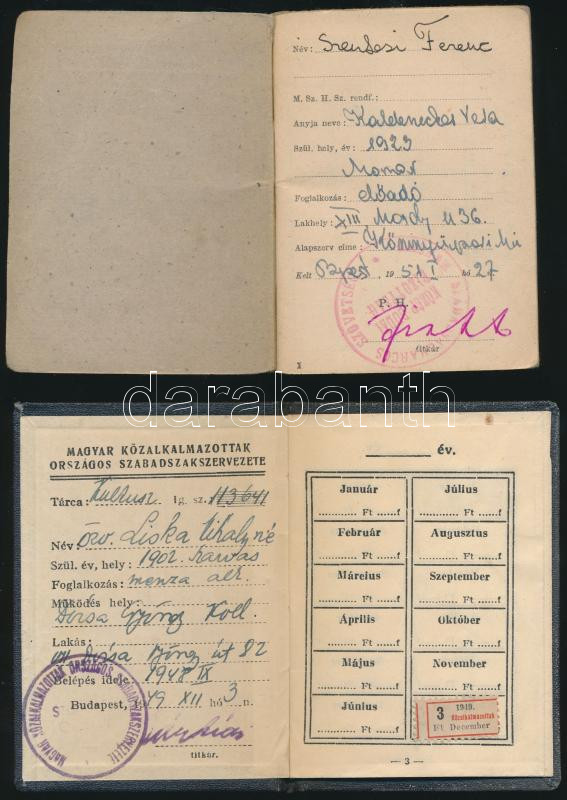 Név: Szentesi Ferenc
M. Sz. H. Sz. rendf.:
Anyja neve: Vera
Szül. hely, év: 1923
Foglalkozás: előadó
Lakhely: XIII 36.
Alapszerv címe:
Kelt Bpest 1951 I hó 27
P. H.
titkár
X
darabanth
MAGYAR KÖZALKALMAZOTTAK
ORSZÁGOS SZABADSZAKSZERVEZETE
Tárca: Kultusz Ig. sz. 113641
Név: özv. Liska Mihályné
Szül. év, hely: 1902.
Foglalkozás: menza alk.
Működés hely:
Dózsa György Koll.
Lakás:
Dózsa György út 82
Belépés ideje: 1948 IX
Budapest, 1949 XII hó 3 n.
titkár.
MAGYAR KÖZALKALMAZOTTAK ORSZÁGOS SZABADSZAKSZERVEZETE
S
év.
Január
Ft f
Február
Ft f
Március
Ft f
Április
Ft f
Május
Ft f
Június
Július
Ft f
Augusztus
Ft f
Szeptember
Ft f
Október
Ft f
November
Ft f
3 1949.
Közalkalmazottak
Ft December
— 3 —